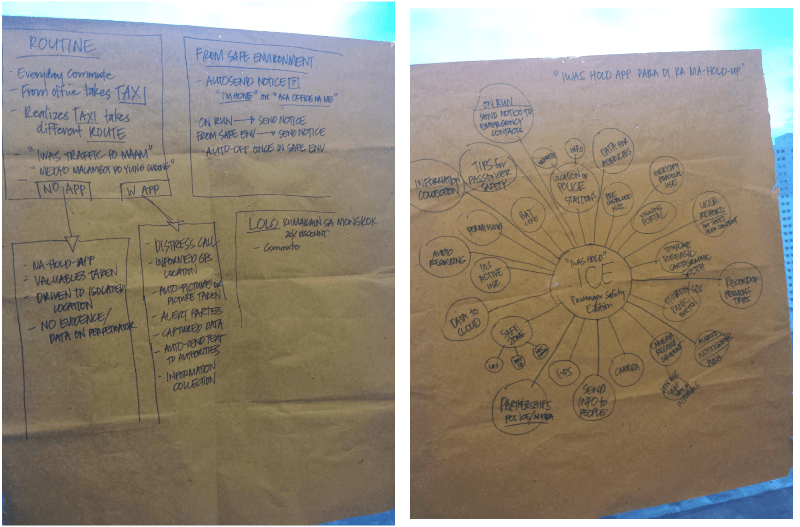 ROUTINE
- Everyday Commute
- From office takes TAXI
- Realizes TAXI takes
different ROUTE
- "IWAS TRAFFIC PO MAAM"
NO APP
W APP
- NA-HOLD-APP
- VALUABLES TAKEN
- DRIVEN TO ISOLATED
LOCATION
- NO EVIDENCE/
DATA ON PERPETRATOR
- DISTRESS CALL
- INFORMED GPS
LOCATION
- AUTO-PICTURE OR
PICTURE TAKEN
- ALERT PARTIES
- CAPTURED DATA
- AUTO-SEND TEXT
TO AUTHORITIES
- INFORMATION
COLLECTION
FROM SAFE ENVIRONMENT
- AUTOSEND NOTICE
"I'M HOME" or "ASA OFFICE NA ME"
ON RUN → SEND NOTICE
FROM SAFE ENV → SEND NOTICE
AUTO-OFF ONCE IN SAFE ENV
LOLO KUMAKAIN SA MONGKOK
20% DISCOUNT
- Commute
"IWAS HOLD APP PARA DI KA MA-HOLD-UP"
ON RUN
SEND NOTICE TO
EMERGENCY
CONTACTS
INFO
DATA FOR
AUTHORITIES
TIPS for
PASSENGER
SAFETY
LOCATION OF
POLICE
STATIONS
INFORMATION
COLLECTION
EVERYDAY
PRACTICAL
USE
BAT
LIFE
PRE
VIEWING
PORTAL
USER
REPORTS
PERMISSIONS
AUDIO
RECORDING
ACTIVE
USE
"IWAS HOLD"
ICE
Passenger Safety
Edition
RECORD OF
PREVIOUS
TRIPS
DATA TO
CLOUD
SAFE
ZONE
GPS
GPS
CAMERA
PARTNERSHIPS
POLICE/MMDA
SEND
INFO to
PEOPLE